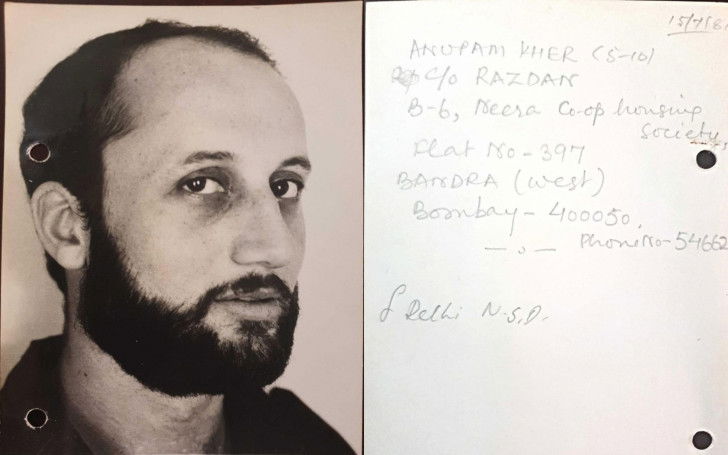 15/7/81
ANUPAM KHER (5-10)
C/o RAZDAN
B-6, Neera Co-op housing
Society,
Flat No - 397
BANDRA (west)
Bombay - 400050.
Phone No - 54662
Delhi N.S.D.